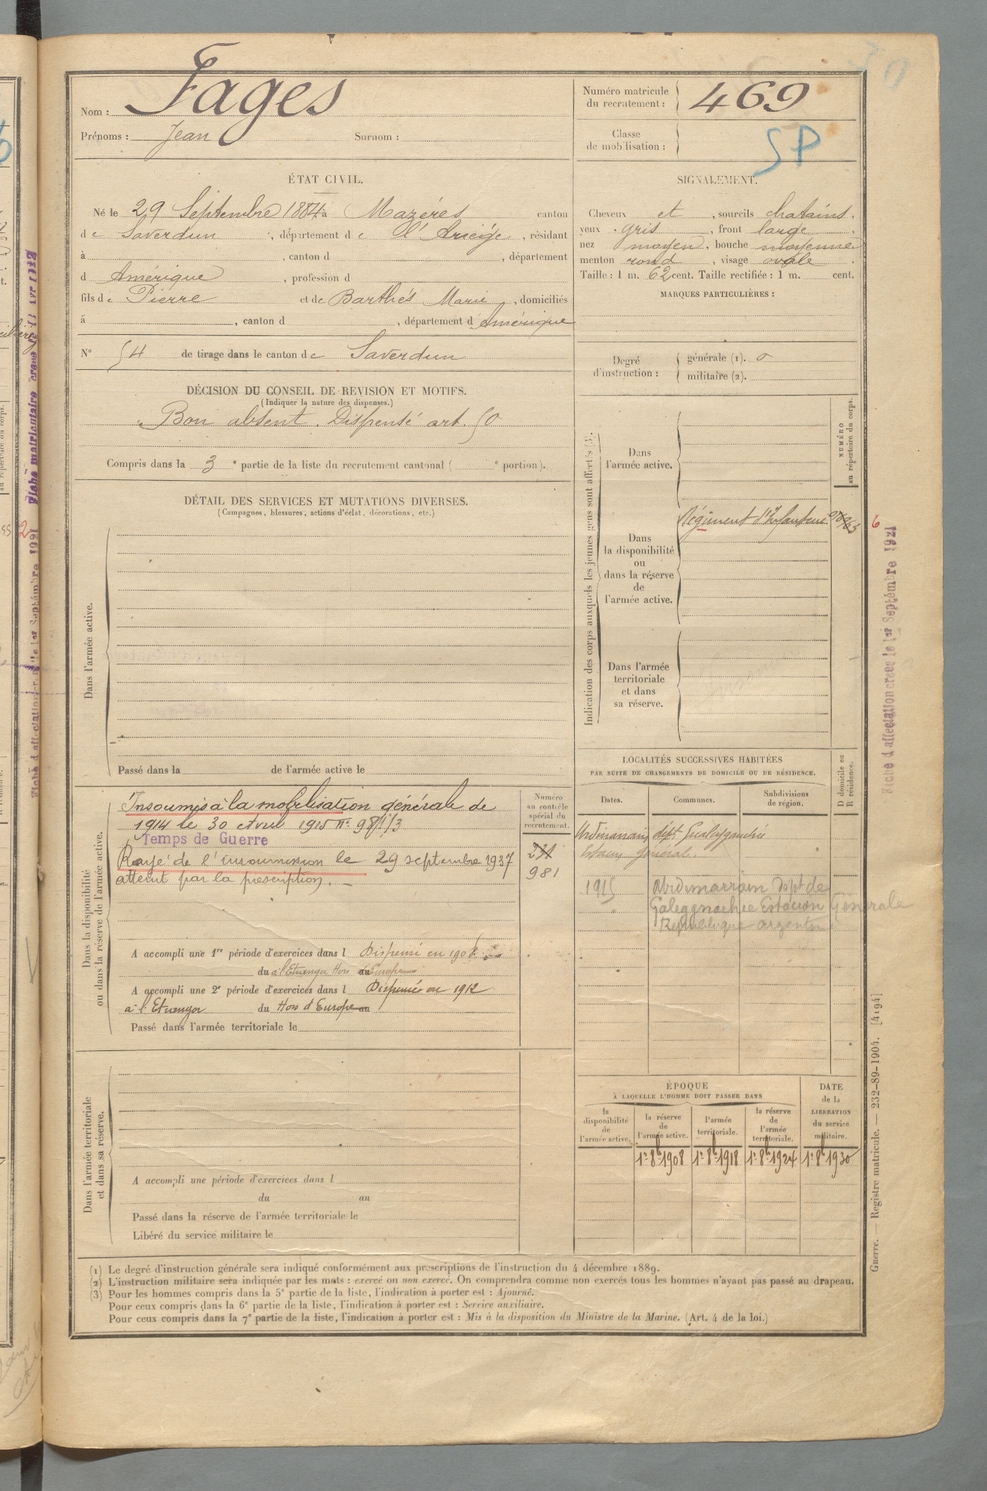 Nom : Fages
Prénoms : Jean Surnom :
Numéro matricule du recrutement : 469
Classe de mobilisation :
SP
ÉTAT CIVIL.
Né le 29 Septembre 1884 à Mazéres canton
de Saverdun, département de l'Ariège, résidant
à , canton d , département
d Amérique , profession d
fils de Pierre et de Barthés Marie, domiciliés
à , canton d , département d Amérique
N° 54 de tirage dans le canton de Saverdun
SIGNALEMENT.
Cheveux et , sourcils chatains.
yeux gris , front large
nez moyen, bouche moyenne
menton rond, visage ovale.
Taille : 1 m. 62 cent. Taille rectifiée : 1 m. cent.
MARQUES PARTICULIÈRES :
Degré d'instruction :
générale (1). 0
militaire (2).
DÉCISION DU CONSEIL DE REVISION ET MOTIFS.
(Indiquer la nature des dispenses.)
Bon absent. Dispensé art. 50
Compris dans la 3e partie de la liste du recrutement cantonal ( e portion).
DÉTAIL DES SERVICES ET MUTATIONS DIVERSES.
(Campagnes, blessures, actions d'éclat, décorations, etc.)
Dans l'armée active.
Passé dans la de l'armée active le
Indication des corps auxquels les jeunes gens sont affectés (3).
NUMÉRO au répertoire du corps.
Dans l'armée active.
Régiment d'Infanterie
Dans la disponibilité ou dans la réserve de l'armée active.
Dans l'armée territoriale et dans sa réserve.
6
Fiche d'affectation créée le 1er Septembre 1921
Dans la disponibilité ou dans la réserve de l'armée active.
Numéro au contrôle spécial du recrutement.
Insoumis à la mobilisation générale de
1914 le 30 avril 1915 N°
Temps de Guerre
Rayé de l'insoumission le 29 septembre 1937
atteint par la prescription.
981
A accompli une 1re période d'exercices dans l Dispensé en
du à l'Etranger Hors d'Europe au
A accompli une 2e période d'exercices dans l Dispensé en 1912
à l'Etranger du Hors d'Europe au
Passé dans l'armée territoriale le
LOCALITÉS SUCCESSIVES HABITÉES
PAR SUITE DE CHANGEMENTS DE DOMICILE OU DE RÉSIDENCE.
Dates. Communes. Subdivisions de région. D domicile ou R résidence.
1915 Dept de
Estacion Générale
République argentine
Dans l'armée territoriale et dans sa réserve.
A accompli une période d'exercices dans l
du au
Passé dans la réserve de l'armée territoriale le
Libéré du service militaire le
ÉPOQUE
À LAQUELLE L'HOMME DOIT PASSER DANS
la disponibilité de l'armée active.
la réserve de l'armée active.
l'armée territoriale.
la réserve de l'armée territoriale.
DATE de la LIBÉRATION du service militaire.
1er 8bre 1908 1er 8bre 1918 1er 8bre 1924 1er 8bre 1930
(1) Le degré d'instruction générale sera indiqué conformément aux prescriptions de l'instruction du 4 décembre 1889.
(2) L'instruction militaire sera indiquée par les mots : exercé ou non exercé. On comprendra comme non exercés tous les hommes n'ayant pas passé au drapeau.
(3) Pour les hommes compris dans la 5e partie de la liste, l'indication à porter est : Ajourné.
Pour ceux compris dans la 6e partie de la liste, l'indication à porter est : Service auxiliaire.
Pour ceux compris dans la 7e partie de la liste, l'indication à porter est : Mis à la disposition du Ministre de la Marine. (Art. 4 de la loi.)
Guerre. Registre matricule. — 232-89-1904. [4194]